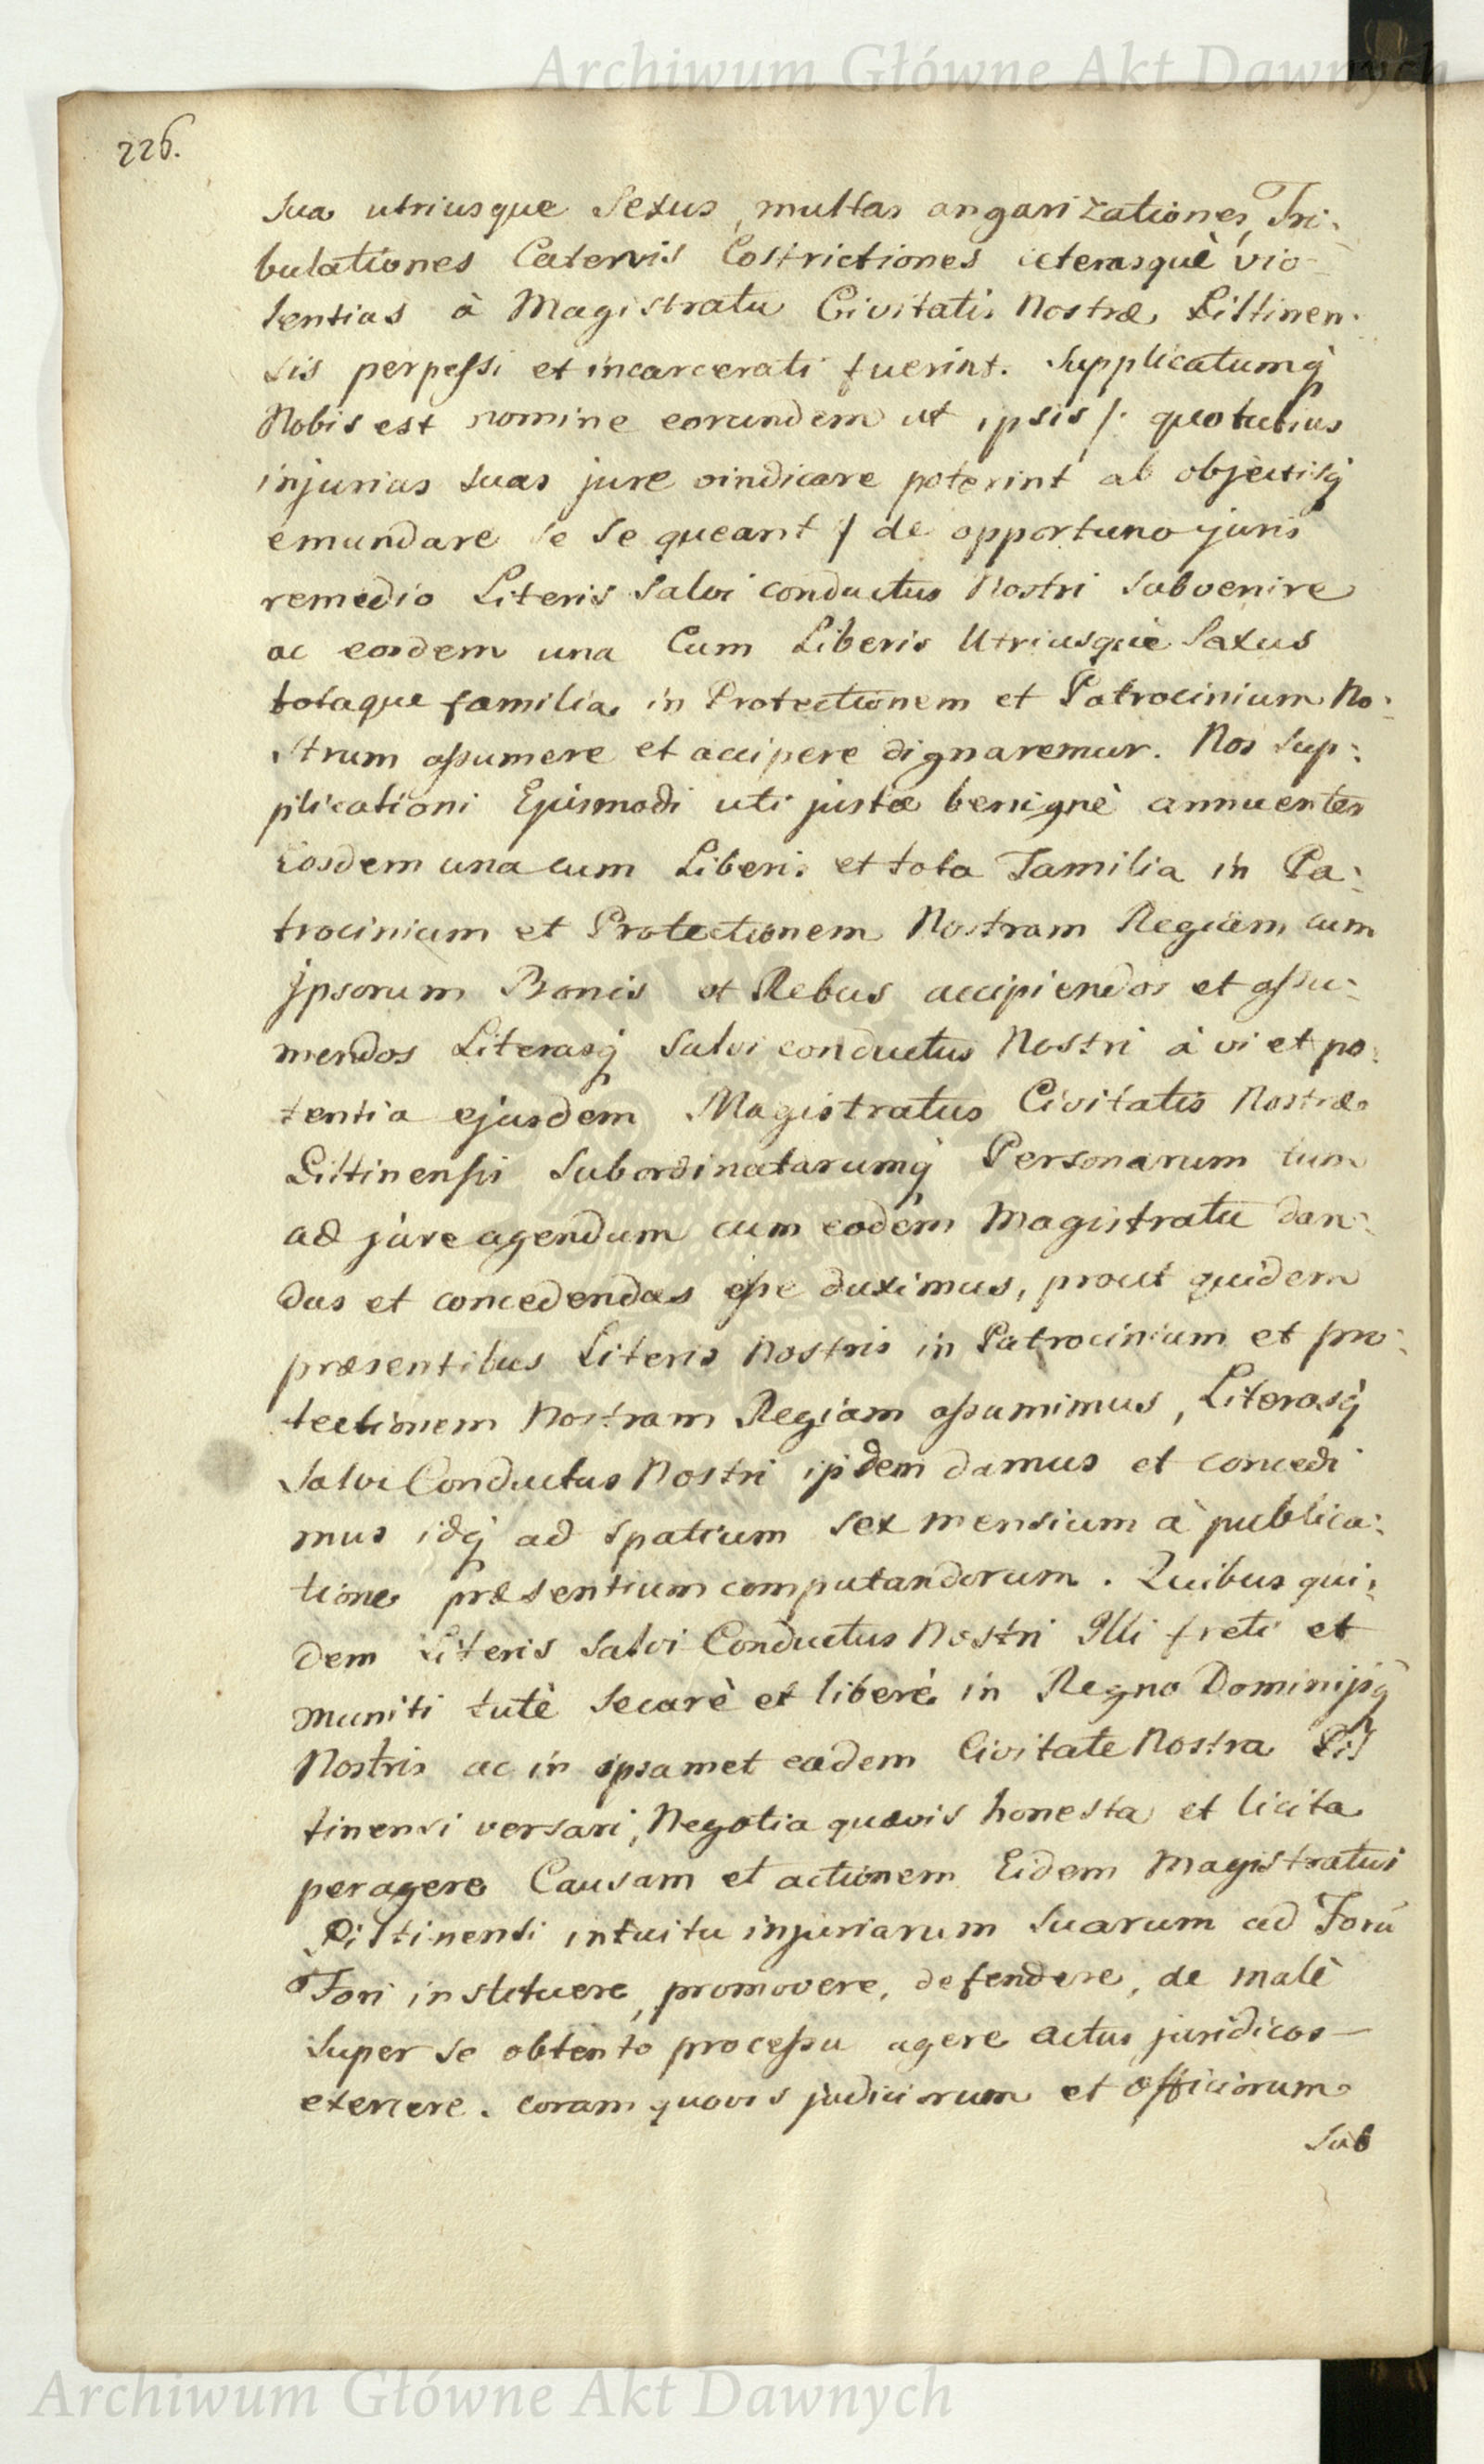 Archiwum Główne Akt Dawnych
226.
sua utriusque Sexus, multas angarizationes, Tri:
bulationes Catervis Costrictiones ceterasquè vio-
lentias à Magistratu Civitatis Nostræ Piltinen:
sis perpessi et incarcerati fuerint. Supplicatumq́
Nobis est nomine eorundem ut ipsis /: quo tutius
injurias suas jure vindicare poterint ab objectisq́
emundare se se queant / de opportuno juris
remedio Literis Salvi conductus Nostri subvenire
ac eosdem una Cum Liberis Utriusquè Sexus
totaque familia in Protectionem et Patrocinium No:
strum assumere et accipere dignaremur. Nos Sup:
plicationi Ejusmodi uti justæ benignè annuentes
eosdem una cum Liberis et tota Familia in Pa:
trocinium et Protectionem Nostram Regiam cum
Ipsorum Bonis et Rebus accipiendos et assu:
mendos Literasq́ Salvi conductus Nostri à vi et po:
tentia ejusdem Magistratus Civitatis Nostræ
Piltinensis Subordinatarumq́ Personarum tum
ad jure agendum cum eodem Magistratu dan:
das et concedendas esse duximus, prout quidem
præsentibus Literis Nostris in Patrocinium et pro:
tectionem Nostram Regiam assumimus, Literasq́
Salvi Conductus Nostri ijsdem damus et concedi
mus idq́ ad spatium sex mensium à publica:
tione præsentium computandorum. Quibus qui:
dem Literis Salvi Conductus Nostri Illi freti et
muniti tutè securè et liberè in Regno Dominijsq́
Nostris ac in ipsamet eadem Civitate Nostra Pil
tinensi versari, Negotia quævis honesta et licita
peragere Causam et actionem Eidem Magistratui
Piltinensi intuitu injuriarum suarum ad Forū
Fori instituere, promovere, defendere, de malè
super se obtento processu agere actus juridicos
exercere. coram quovis judiciorum et officiorum
Sub
Archiwum Główne Akt Dawnych